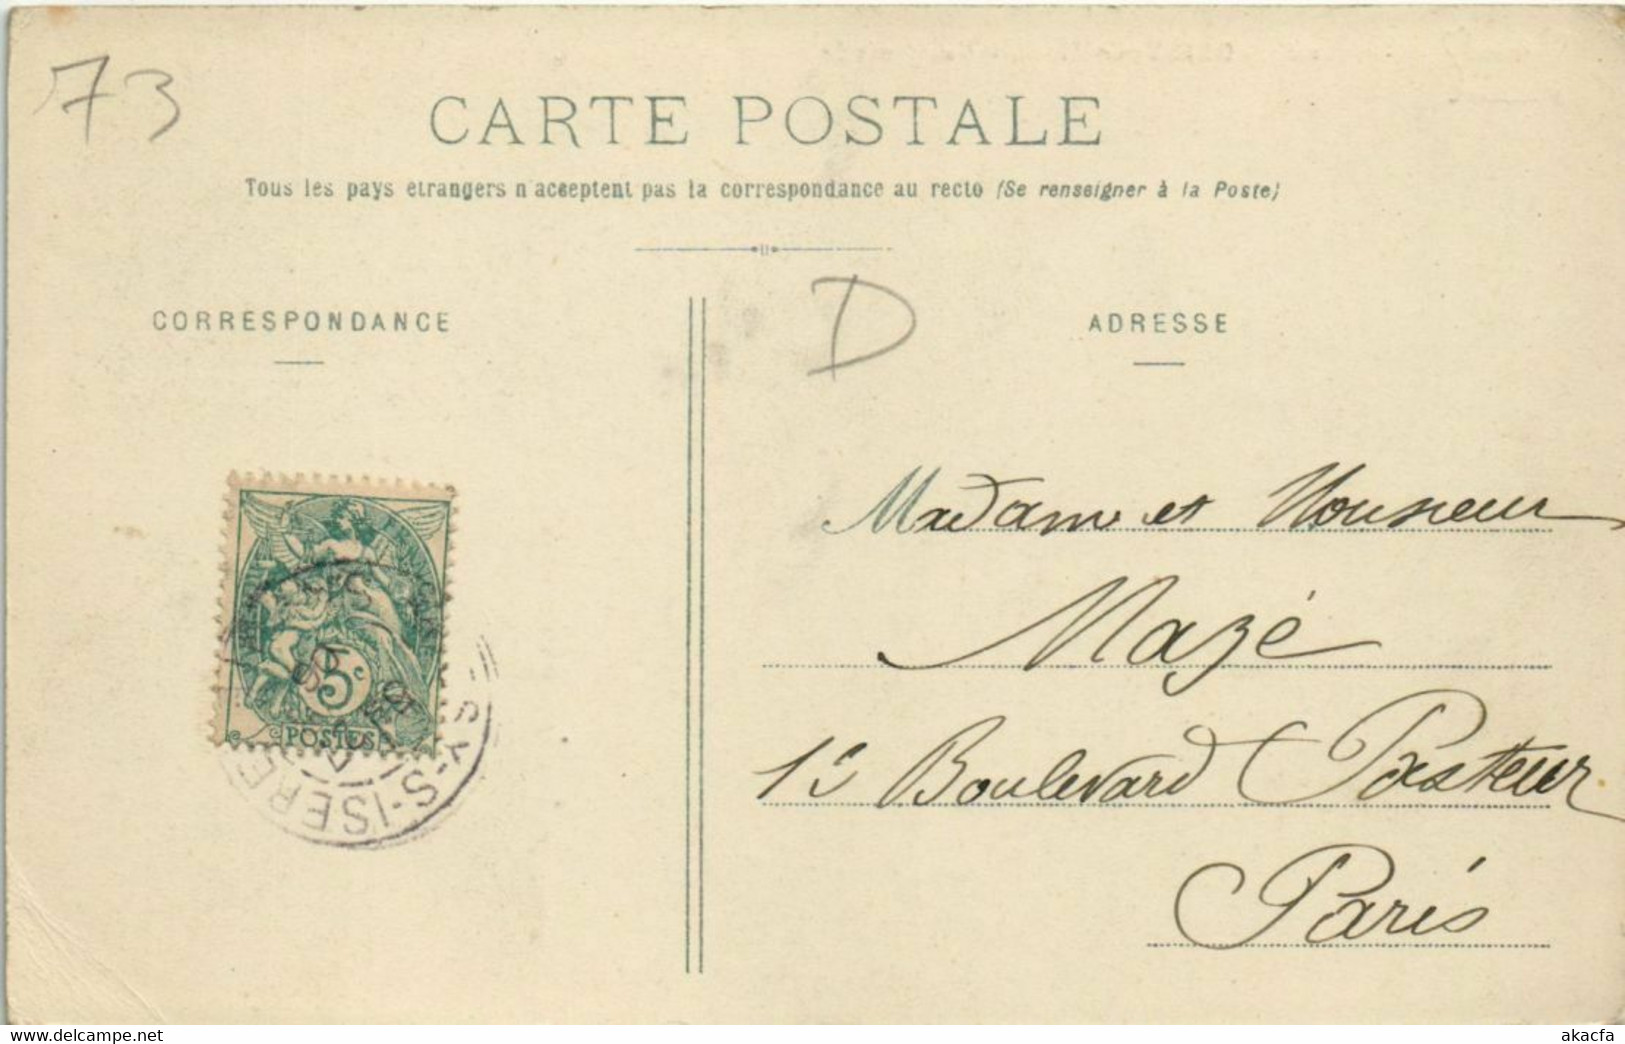 73
CARTE POSTALE
Tous les pays étrangers n'acceptent pas la correspondance au recto (Se renseigner à la Poste)
D
CORRESPONDANCE
ADRESSE
Madame et Monsieur
Mazé
Boulevard Pasteur
Paris
5c
POSTES
S-ISERE
www.delcampe.net
akacfa